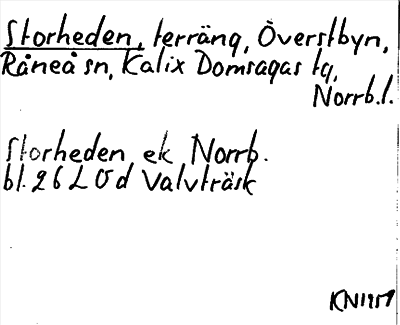 Storheden, terräng, Överstbyn,
Råneå sn, Kalix Domsagas tg,
Norrb.l.
Storheden ek Norrb.
bl. 26 L 0 d Valvträsk